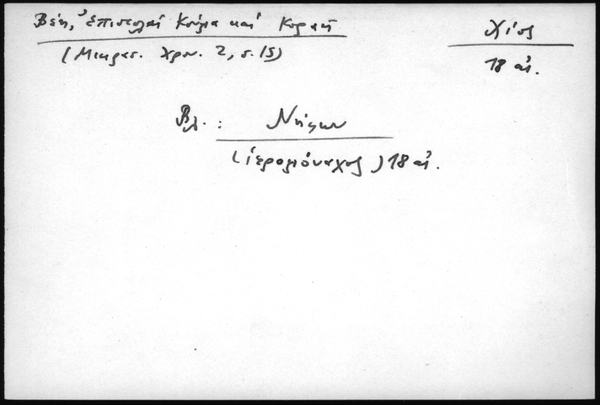 Βέη, Ἐπιστολαί Κούμα καί Κοραῆ
(Μικρασ. Χρον. 2, σ. 15)
Χίος
18 αἰ.
Βλ. : Νήφων
(ἱερομόναχος) 18 αἰ.